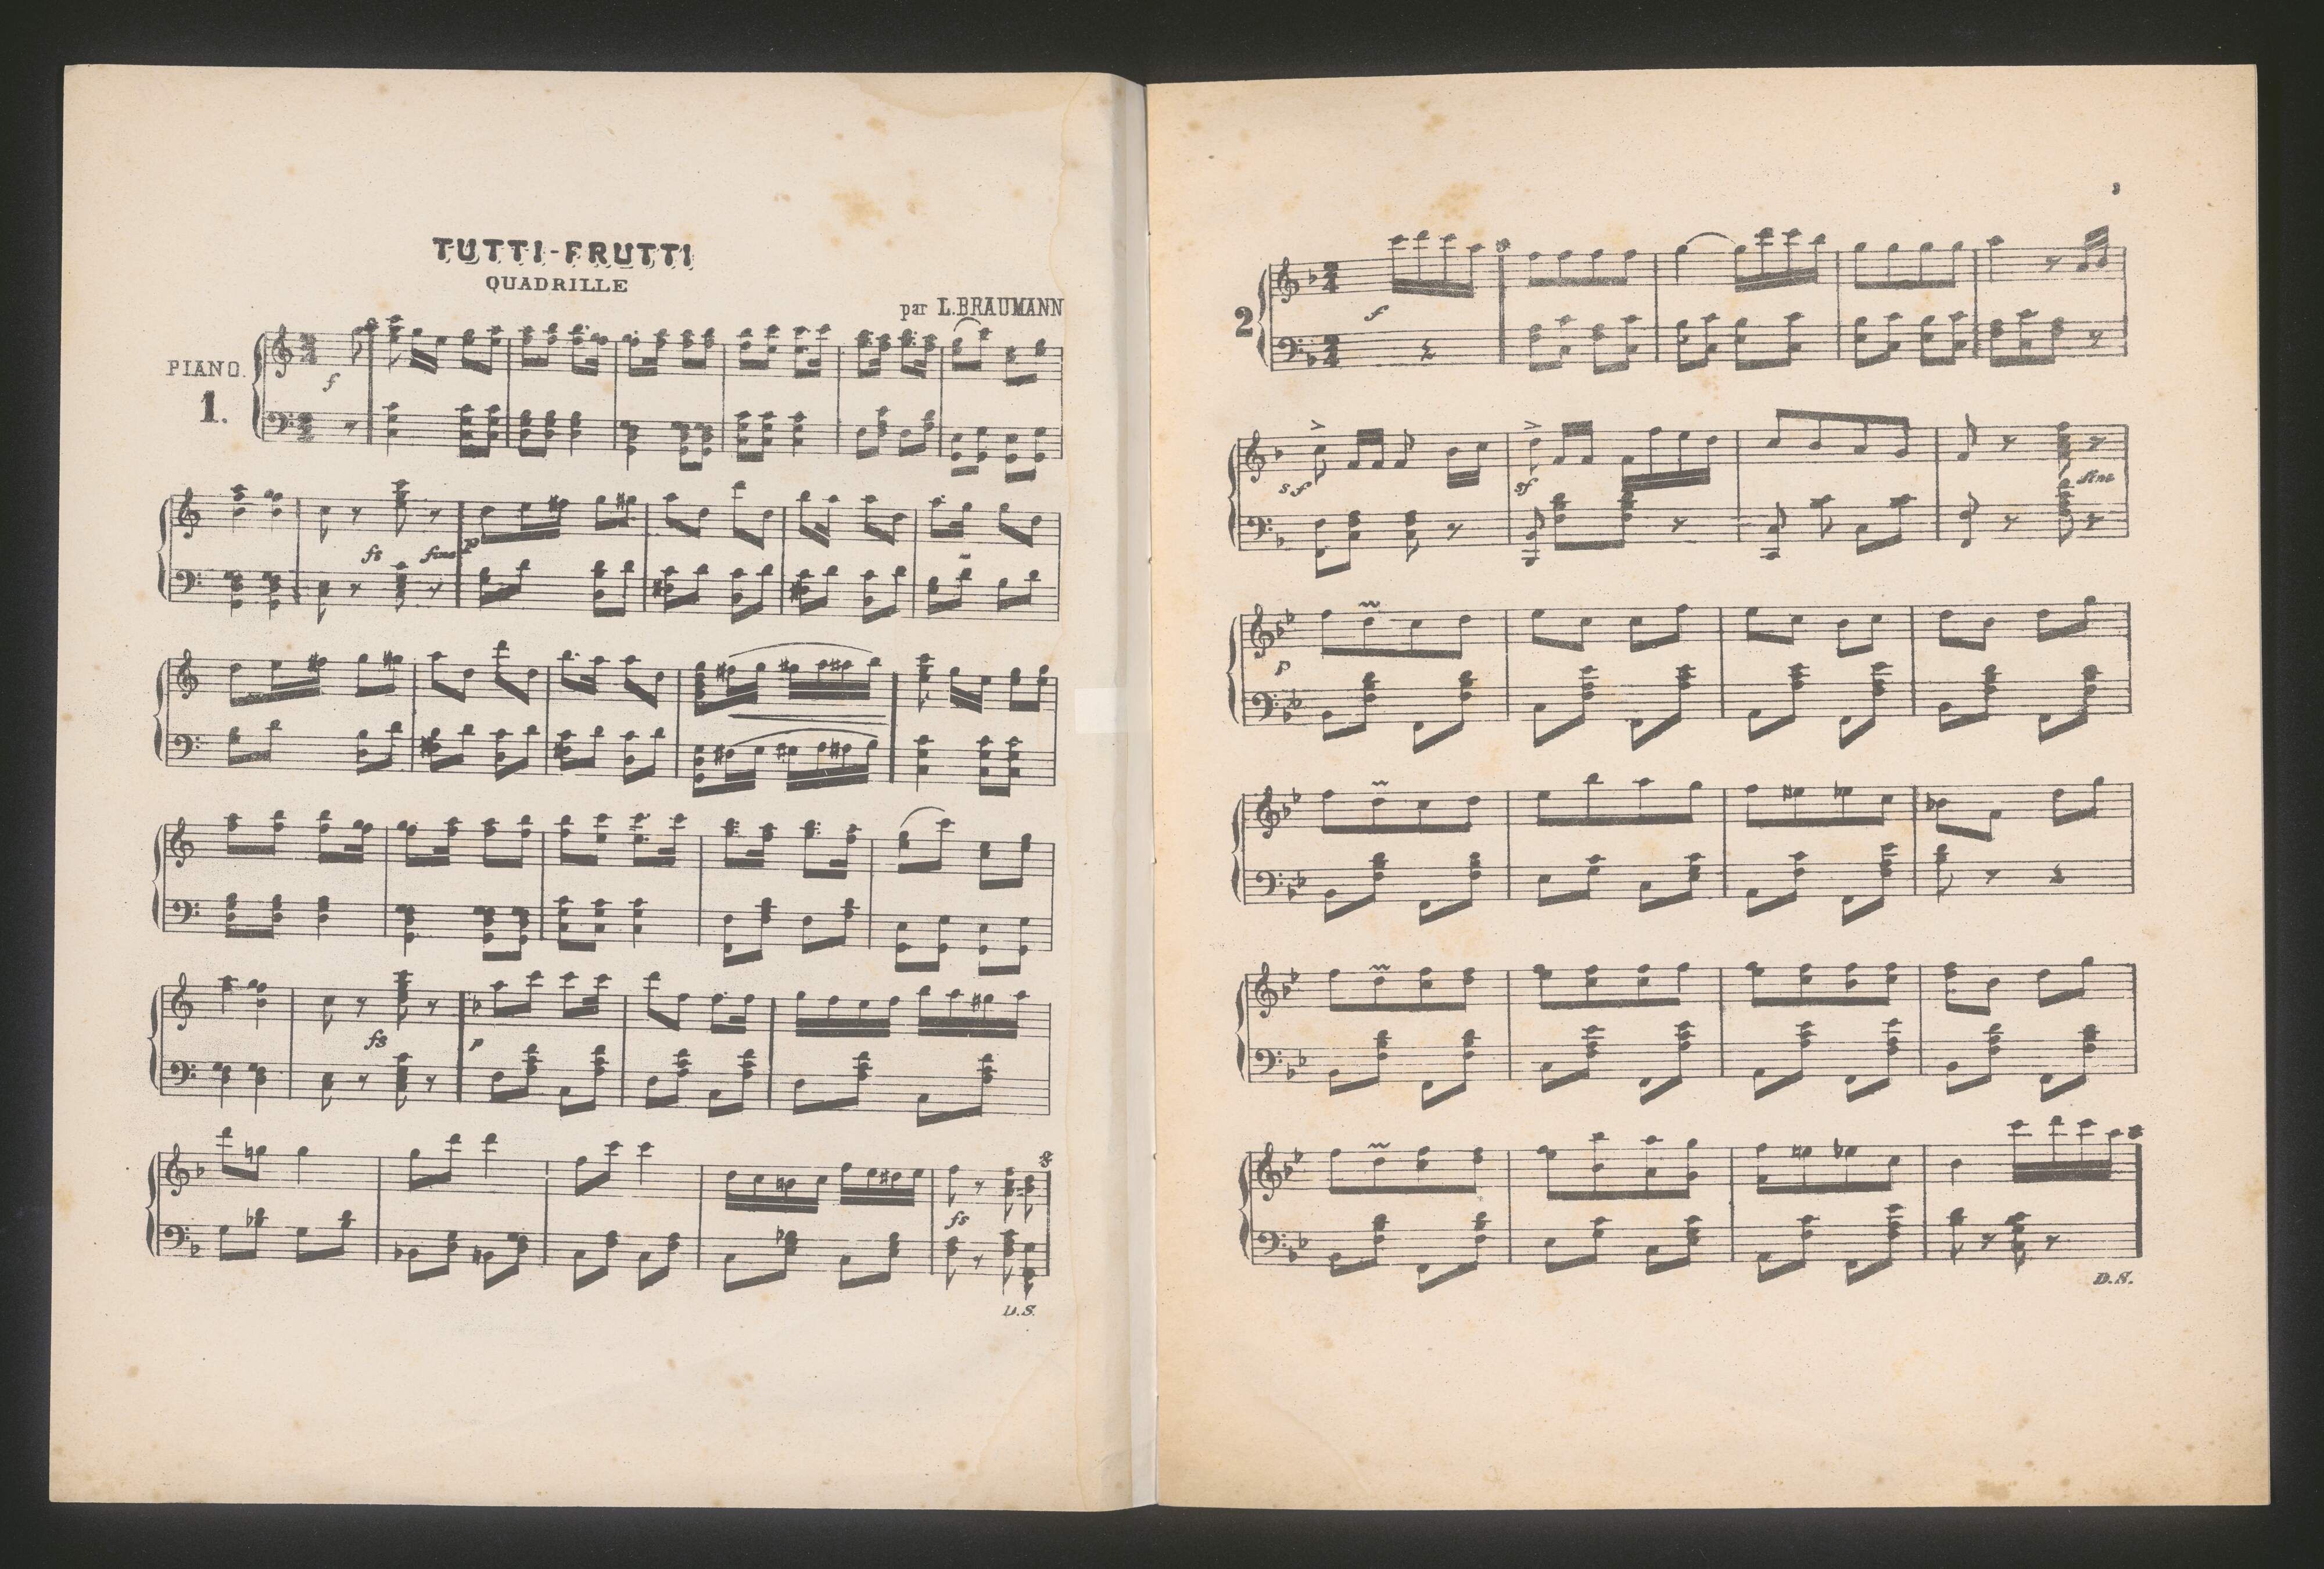 TUTTI-FRUTTI
QUADRILLE
par L.BRAUMANN
PIANO.
1.
f
fs
fine
p
fs
p
fs
D.S.
3
2
f
sf
sf
fine
p
D.S.